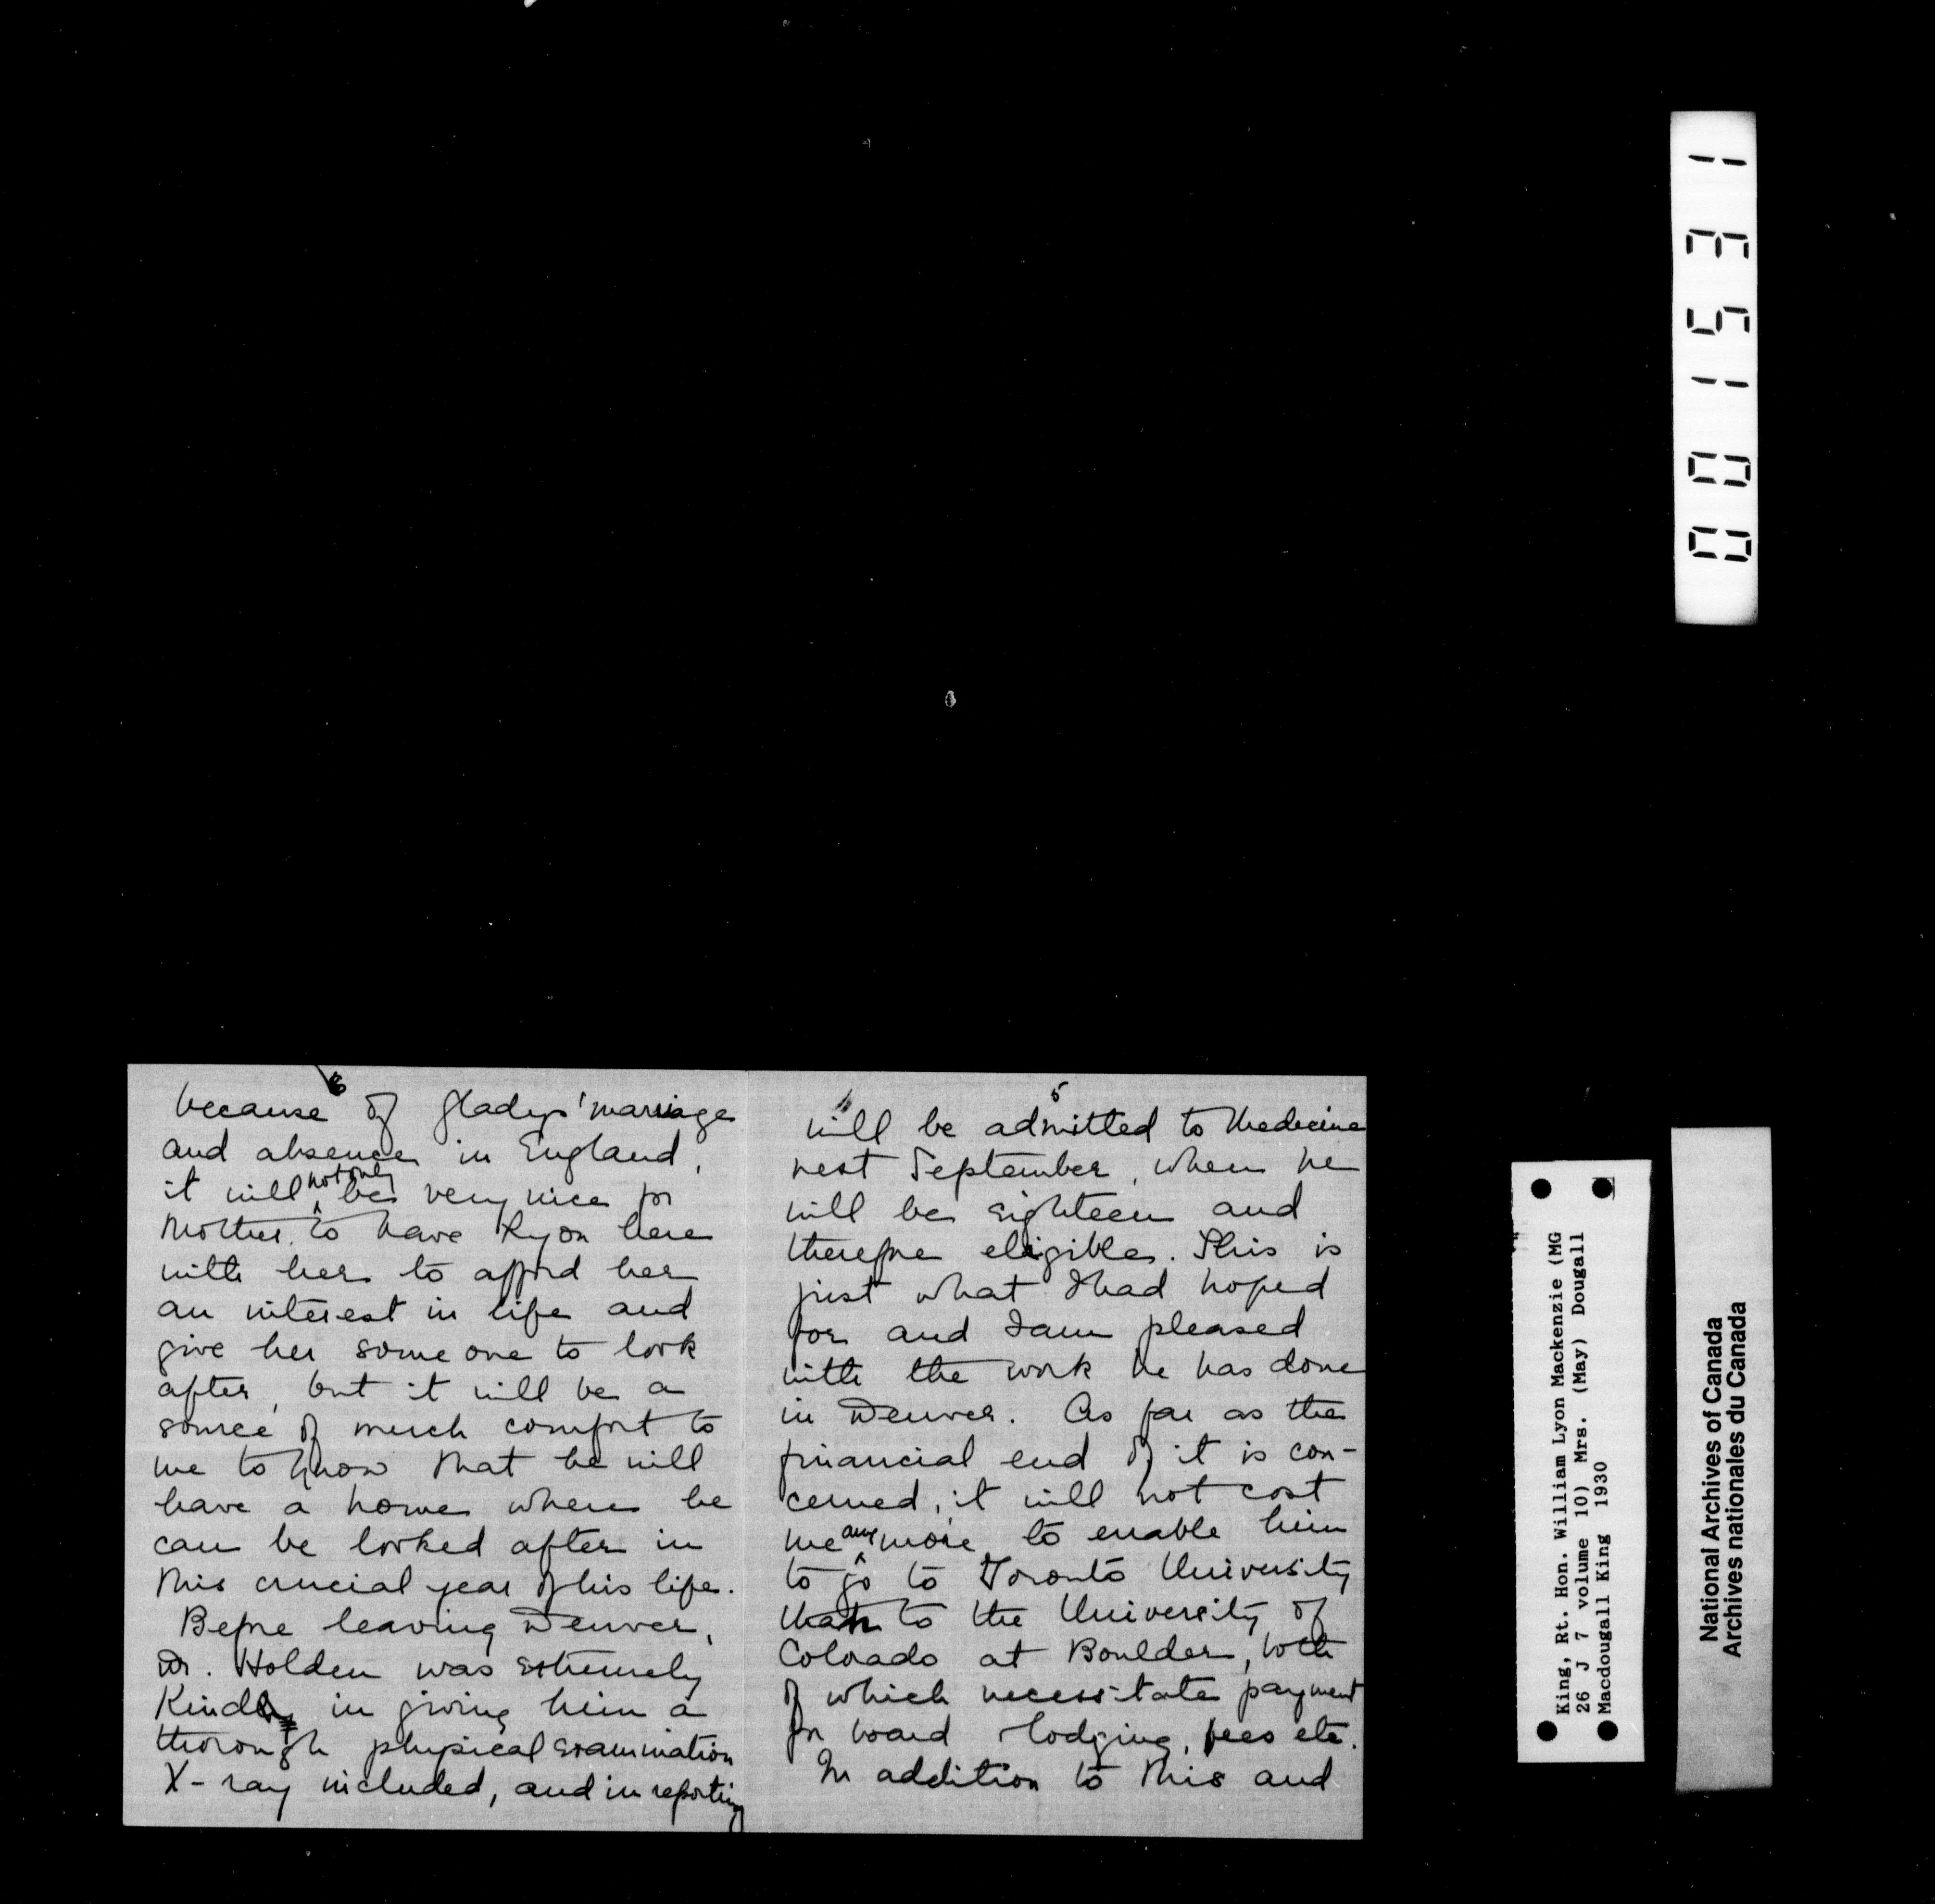 6
because of Gladys' marriage
and absence in England,
it will not only be very nice for
Mother, to have Lyon here
with her to afford her
an interest in life and
give her some one to look
after, but it will be a
source of much comfort to
me to know that he will
have a home where he
can be looked after in
this crucial year of his life.
Before leaving Denver,
Dr. Holden was extremely
kind in giving him a
thorough physical examination
X-ray included, and in reporting
5
will be admitted to Medicine
next September, when he
will be eighteen and
therefore eligible. This is
just what I had hoped
for and I am pleased
with the work he has done
in Denver. As far as the
financial end of it is con-
cerned, it will not cost
me any more to enable him
to go to Toronto University
than to the University of
Colorado at Boulder, both
of which necessitate payment
for board lodging, fees etc.
In addition to this and
001531
King, Rt. Hon. William Lyon Mackenzie (MG
26 J 7 volume 10) Mrs. (May) Dougall
Macdougall King 1930
National Archives of Canada
Archives nationales du Canada